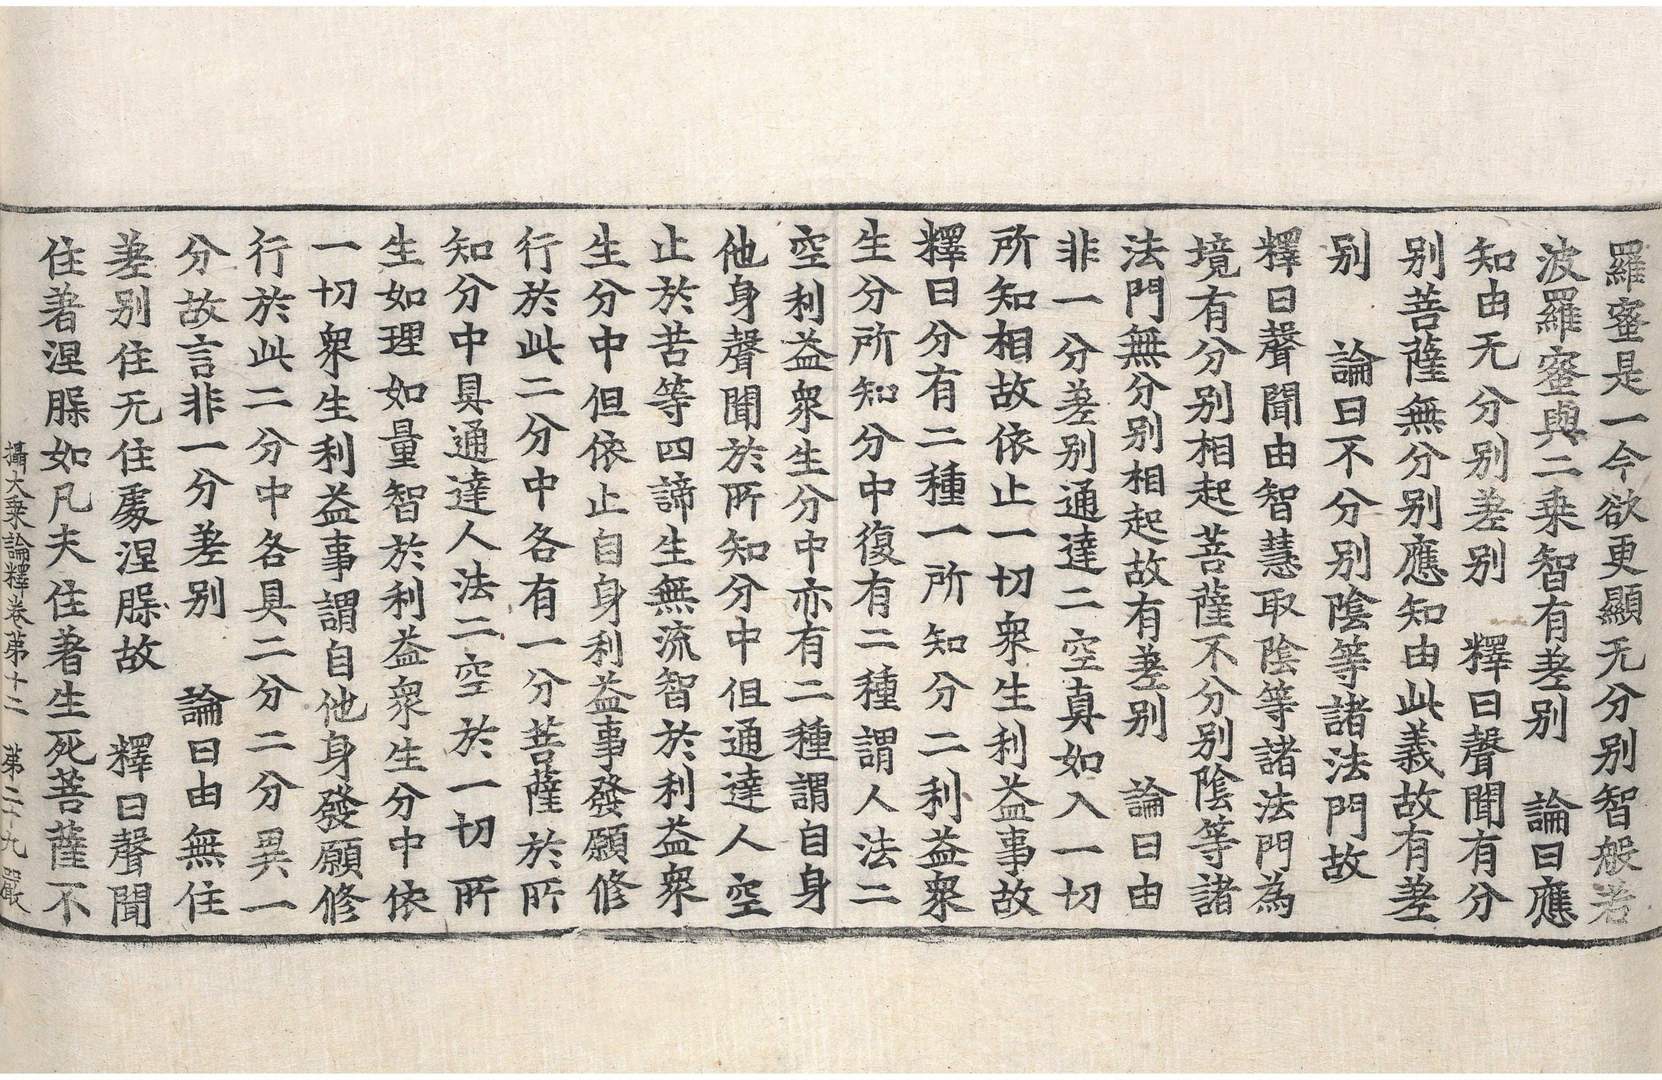 羅蜜是一今欲更顯无分別智般若
波羅蜜與二乗智有差別　論曰應
知由无分別差別　釋曰聲聞有分
別菩薩無分別應知由此義故有差
別　論曰不分別陰等諸法門故
釋曰聲聞由智慧取陰等諸法門為
境有分別相起菩薩不分別陰等諸
法門無分別相起故有差別　論曰由
非一分差別通達二空真如入一切
所知相故依止一切衆生利益事故
釋曰分有二種一所知分二利益衆
生分所知分中復有二種謂人法二
空利益衆生分中亦有二種謂自身
他身聲聞於所知分中但通達人空
止於苦等四諦生無流智於利益衆
生分中但依止自身利益事發願修
行於此二分中各有一分菩薩於所
知分中具通達人法二空於一切所
生如理如量智於利益衆生分中依
一切衆生利益事謂自他身發願修
行於此二分中各具二分二分異一
分故言非一分差別　論曰由無住
差別住无住處涅脲故　釋曰聲聞
住著涅脲如凡夫住著生死菩薩不
攝大乗論釋卷苐十二　苐二十九　巖